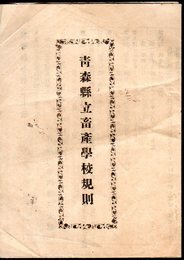 青森縣立畜產學校規則